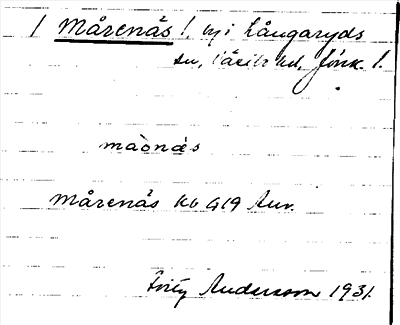 / Mårenås /. by i Långaryds
sn, Västbo hd, Jönk. l.
maònås
Mårenås Kb 419 Anv.
Andersson 1931.